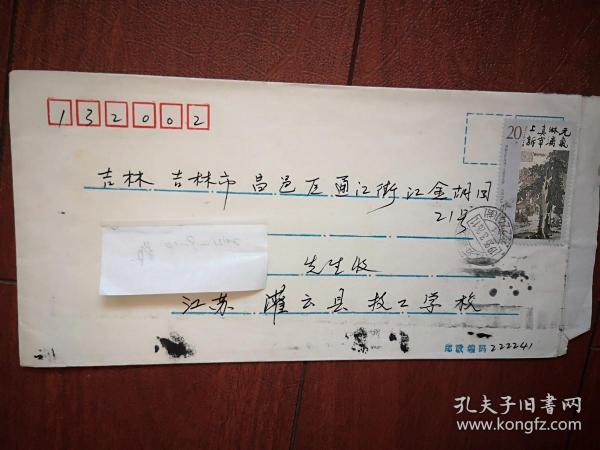 132002
20
吉林 吉林市 昌邑区通江街江金胡同
21号
先生收
江苏 灌云县技工学校
邮政编码 222241
孔夫子旧书网
www.kongfz.com